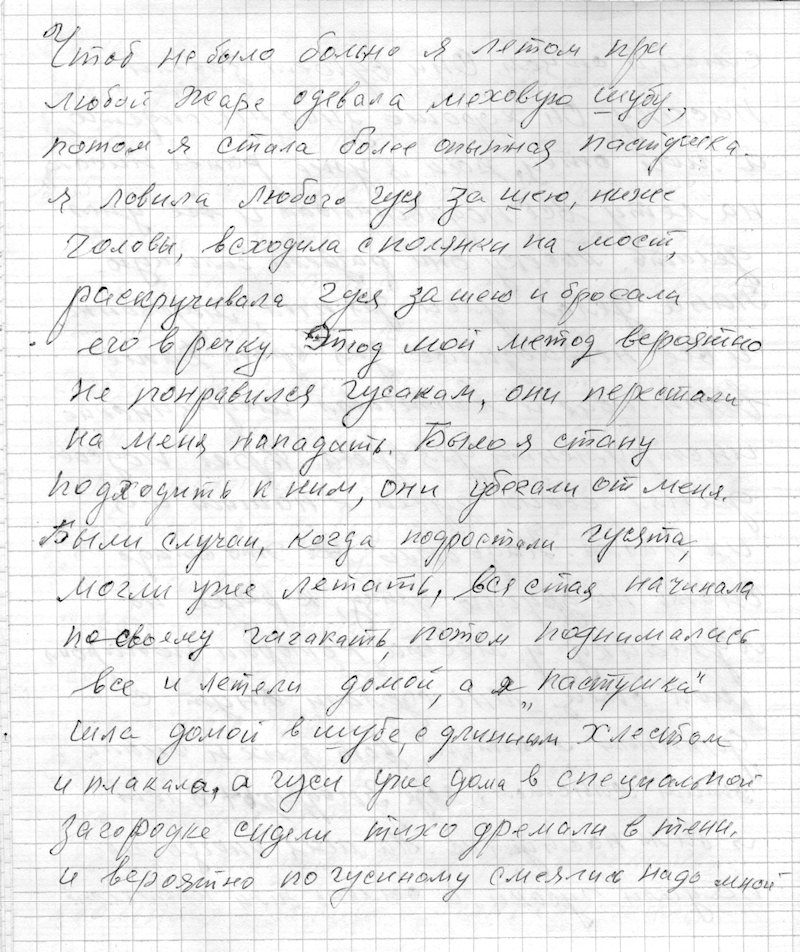 Чтоб не было больно я летом при
любой жаре одевала меховую шубу.,
потом я стала более опытная пастушка.
я ловила любого гуся за шею, ниже
головы, всходила с полянки на мост,
раскручивала гуся за шею и бросала
его в речку. Этод мой метод вероятно
не понравился гусакам, они перестали
на меня нападать. Было я стану
подходить к ним, они убегали от меня.
Были случаи, когда подростали гусята,
могли уже летать, вся стая начинала
по-своему гагакать, потом поднимались
все и летели домой, а я „пастушка"
шла домой в шубе, с длинным хлестом
и плакала, а гуси уже дома в специальной
загородке сидели тихо дремали в тени.
и вероятно по гусиному смеялись надо мной